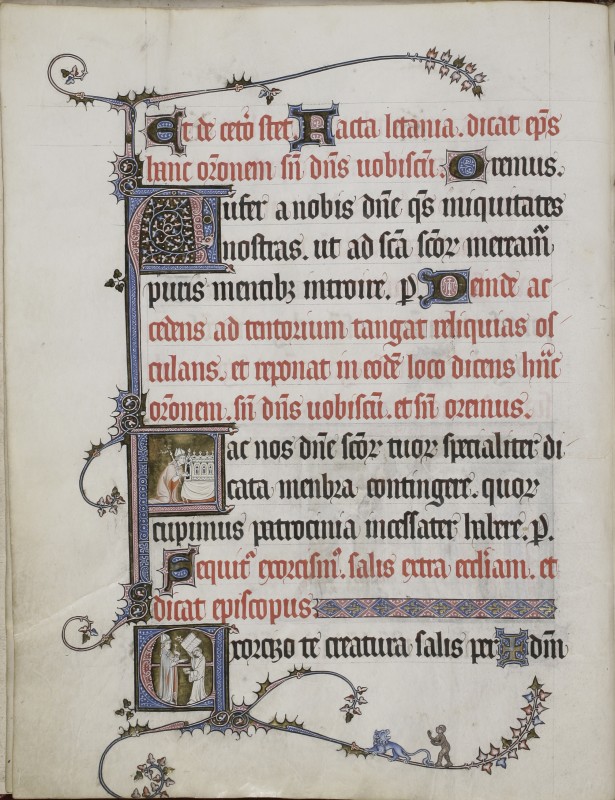 Et de cet̄o stet. Facta letania. dicat ep̄s
hanc or̄onem sn̄ dn̄s uobiscū. Oremus.
Aufer a nobis dn̄e q̄s iniquitates
nostras. ut ad sc̄a sc̄oꝝ meream̄
puris mentibꝫ introire. p. Deinde ac
cedens ad tentorium tangat reliquias os
culans. et reponat in eodē loco dicens hāc
or̄onem. sn̄ dn̄s uobiscū. et sn̄ oremus.
Fac nos dn̄e sc̄oꝝ tuoꝝ specialiter di
cata menbra contingere. quoꝝ
cupimus patrocinia incessater habere. p.
Sequit᷑ exorcism᷑. salis extra eccl̄iam. et
dicat episcopus.
Exorcizo te creatura salis per dm̄